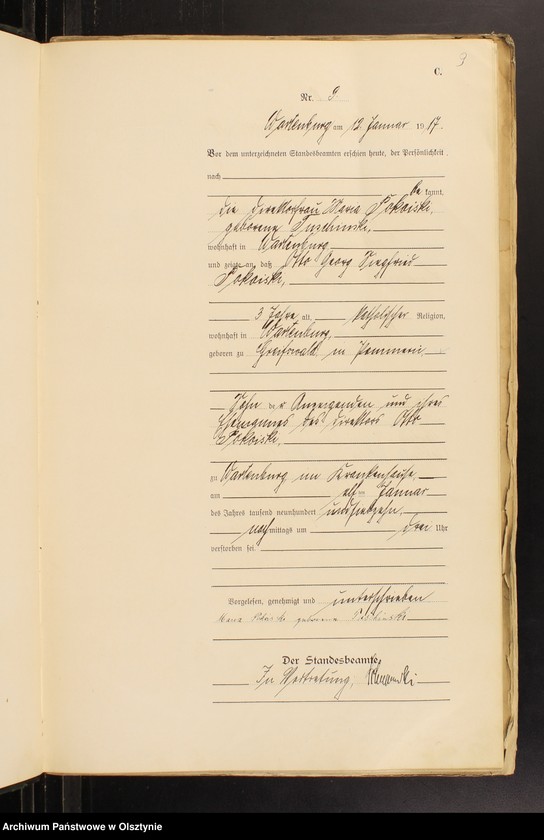 9
C.
Nr. 9
Wartenburg am 12. Januar 1917.
Vor dem unterzeichneten Standesbeamten erschien heute, der Persönlichkeit
nach
be kannt,
die Direktorfrau Maria
geborene
wohnhaft in Wartenburg,
und zeigte an, daß Otto Georg Siegfried
3 Jahre alt, katholischer Religion,
wohnhaft in Wartenburg,
geboren zu Greifswald in Pommern,
Sohn der Anzeigenden und ihres
Ehemannes des Direktors Otto
zu Wartenburg im Krankenhause,
am elften Januar
des Jahres tausend neunhundert undsiebzehn,
nach mittags um drei Uhr
verstorben sei.
Vorgelesen, genehmigt und unterschrieben
Maria geborene
Der Standesbeamte.
In Vertretung,
Archiwum Państwowe w Olsztynie